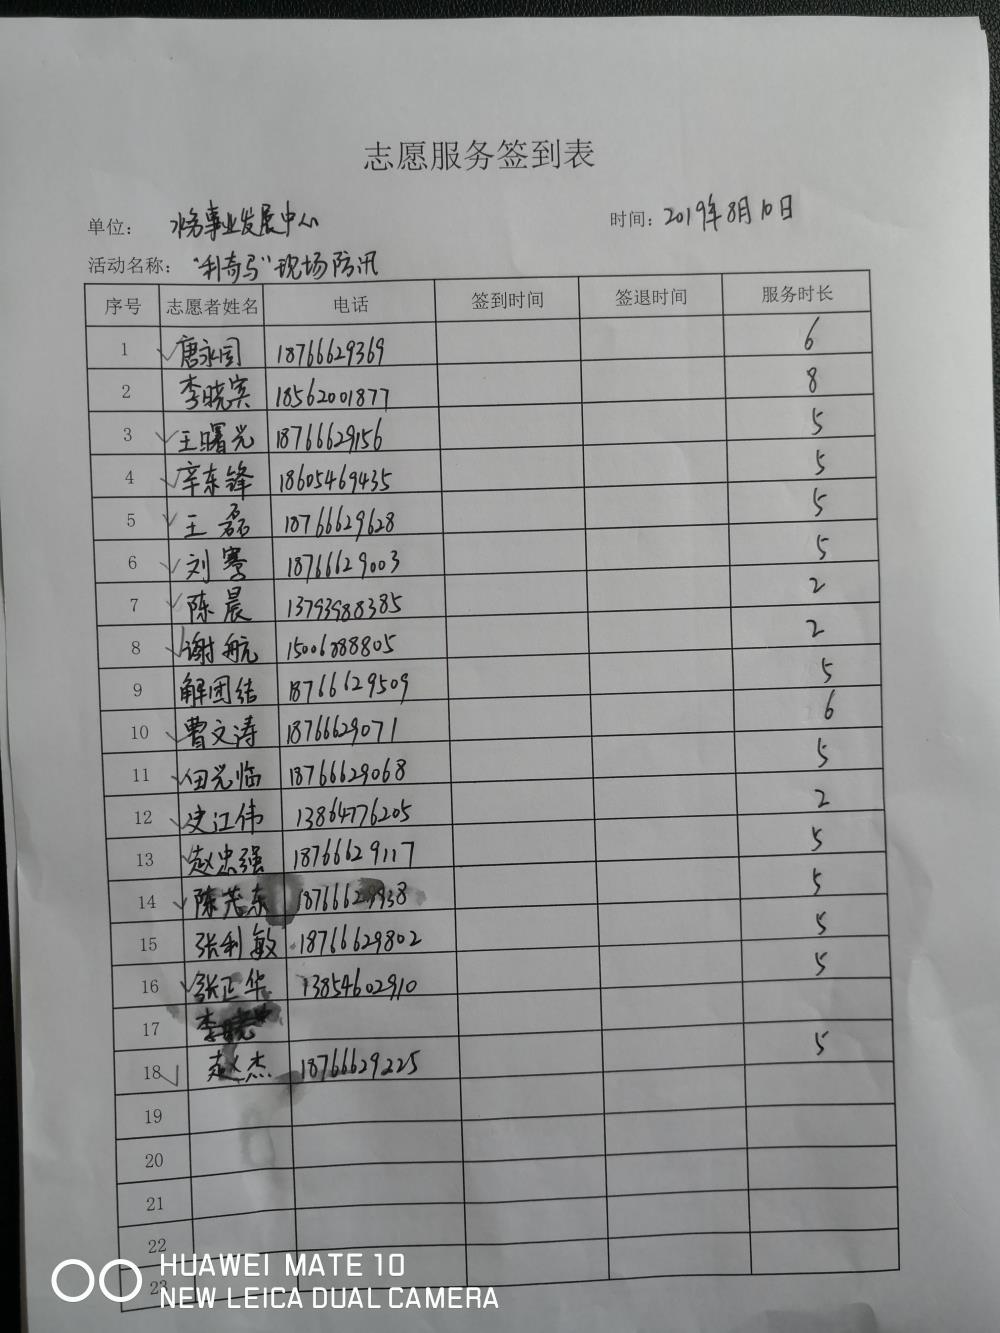 志愿服务签到表
单位： 水务事业发展中心 时间：2019年8月10日
活动名称： "利奇马"现场防汛
序号 志愿者姓名 电话 签到时间 签退时间 服务时长
1 唐永国 18766629369 6
2 李晓宾 18562001877 8
3 王曙光 18766629156 5
4 辛东锋 18605469435 5
5 王磊 18766629628 5
6 刘骞 18766629003 5
7 陈晨 13793988385 2
8 谢航 15006888805 2
9 解团结 18766629509 5
10 曹文涛 18766629071 6
11 田光临 18766629068 5
12 史江伟 13864776205 2
13 赵忠强 18766629117 5
14 陈茂东 18766629938 5
15 张利敏 18766629802 5
16 张正华 13854602910 5
17 李晓
18 赵杰 18766629225 5
19
20
21
22
23
HUAWEI MATE 10
NEW LEICA DUAL CAMERA